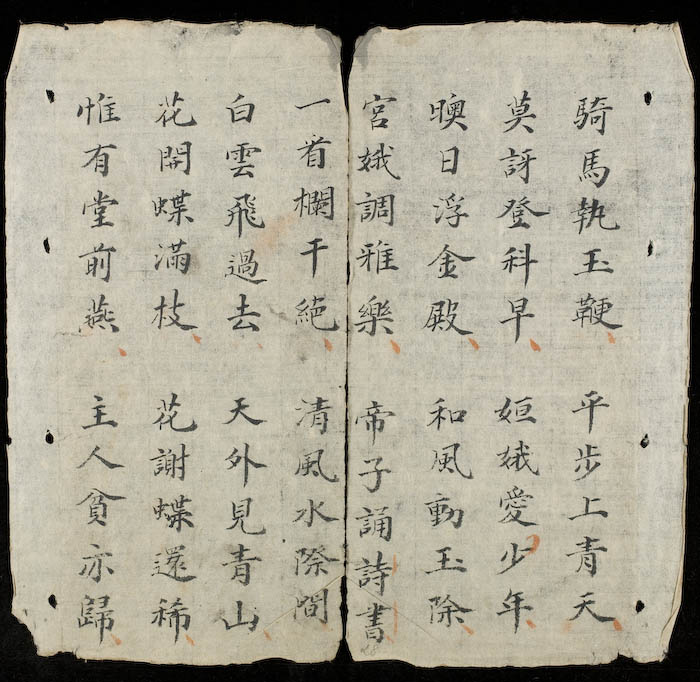 騎馬執玉鞭 平步上青天
莫訝登科早 姮娥愛少年
日浮金殿 和風動玉除
宮娥調雅樂 帝子誦詩書
一看欄干絶 清風水際間
白雲飛過去 天外見青山
花開蝶滿枝 花謝蝶還稀
惟有堂前燕 主人貧亦歸